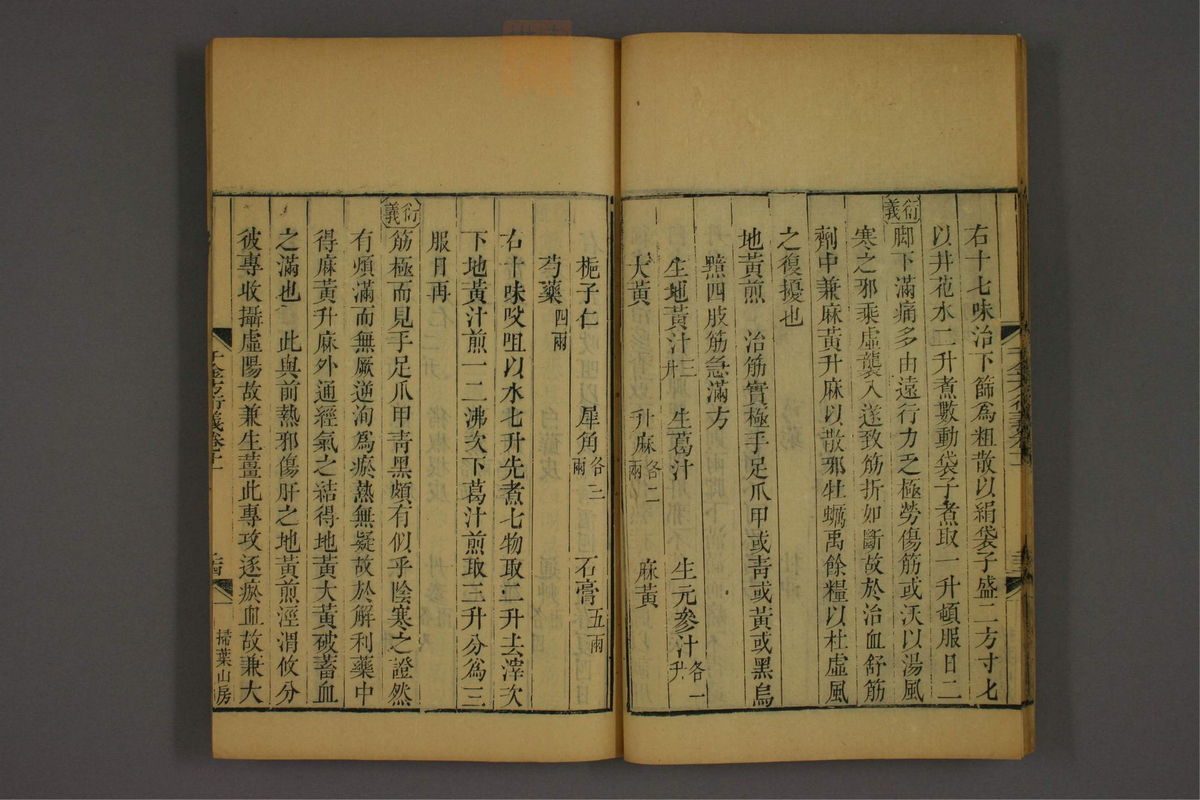 右十七味治下篩爲粗散以絹袋子盛二方寸匕
以井花水二升煮數動袋子煮取一升頓服日二
衍義
脚下滿痛多由遠行力乏極勞傷筋或沃以湯風
寒之邪乘虛襲入遂致筋折如斷故於治血舒筋
劑中兼麻黃升麻以散邪牡蠣禹餘糧以杜虛風
之復擾也
地黃煎　治筋實極手足爪甲或靑或黃或黑烏
黯四肢筋急滿方
生地黃汁三升　生葛汁　生元參汁各一升
大黃　升麻各二兩　麻黃
梔子仁　犀角各三兩　石膏五兩
芍藥四兩
右十味㕮咀以水七升先煮七物取二升去滓次
下地黃汁煎一二沸次下葛汁煎取三升分爲三
服日再
衍義
筋極而見手足爪甲靑黑頗有似乎陰寒之證然
有煩滿而無厥逆洵爲瘀熱無疑故於解利藥中
得麻黃升麻外通經氣之結得地黃大黃破蓄血
之滿也　此與前熱邪傷肝之地黃煎涇渭攸分
彼專收攝虛陽故兼生薑此專攻逐瘀血故兼大
千金方衍義卷十一
掃葉山房